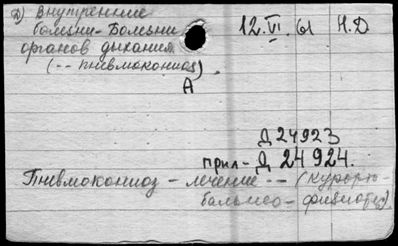 Д) Внутренние
болезни - Болезни
органов дыхания
(-- пневмокониоз).
А
12.VI.61 Н.Д
Д 24923
прил- Д 24924.
Пневмокониоз - лечение -- (курорты-
бальнео - физиотер).